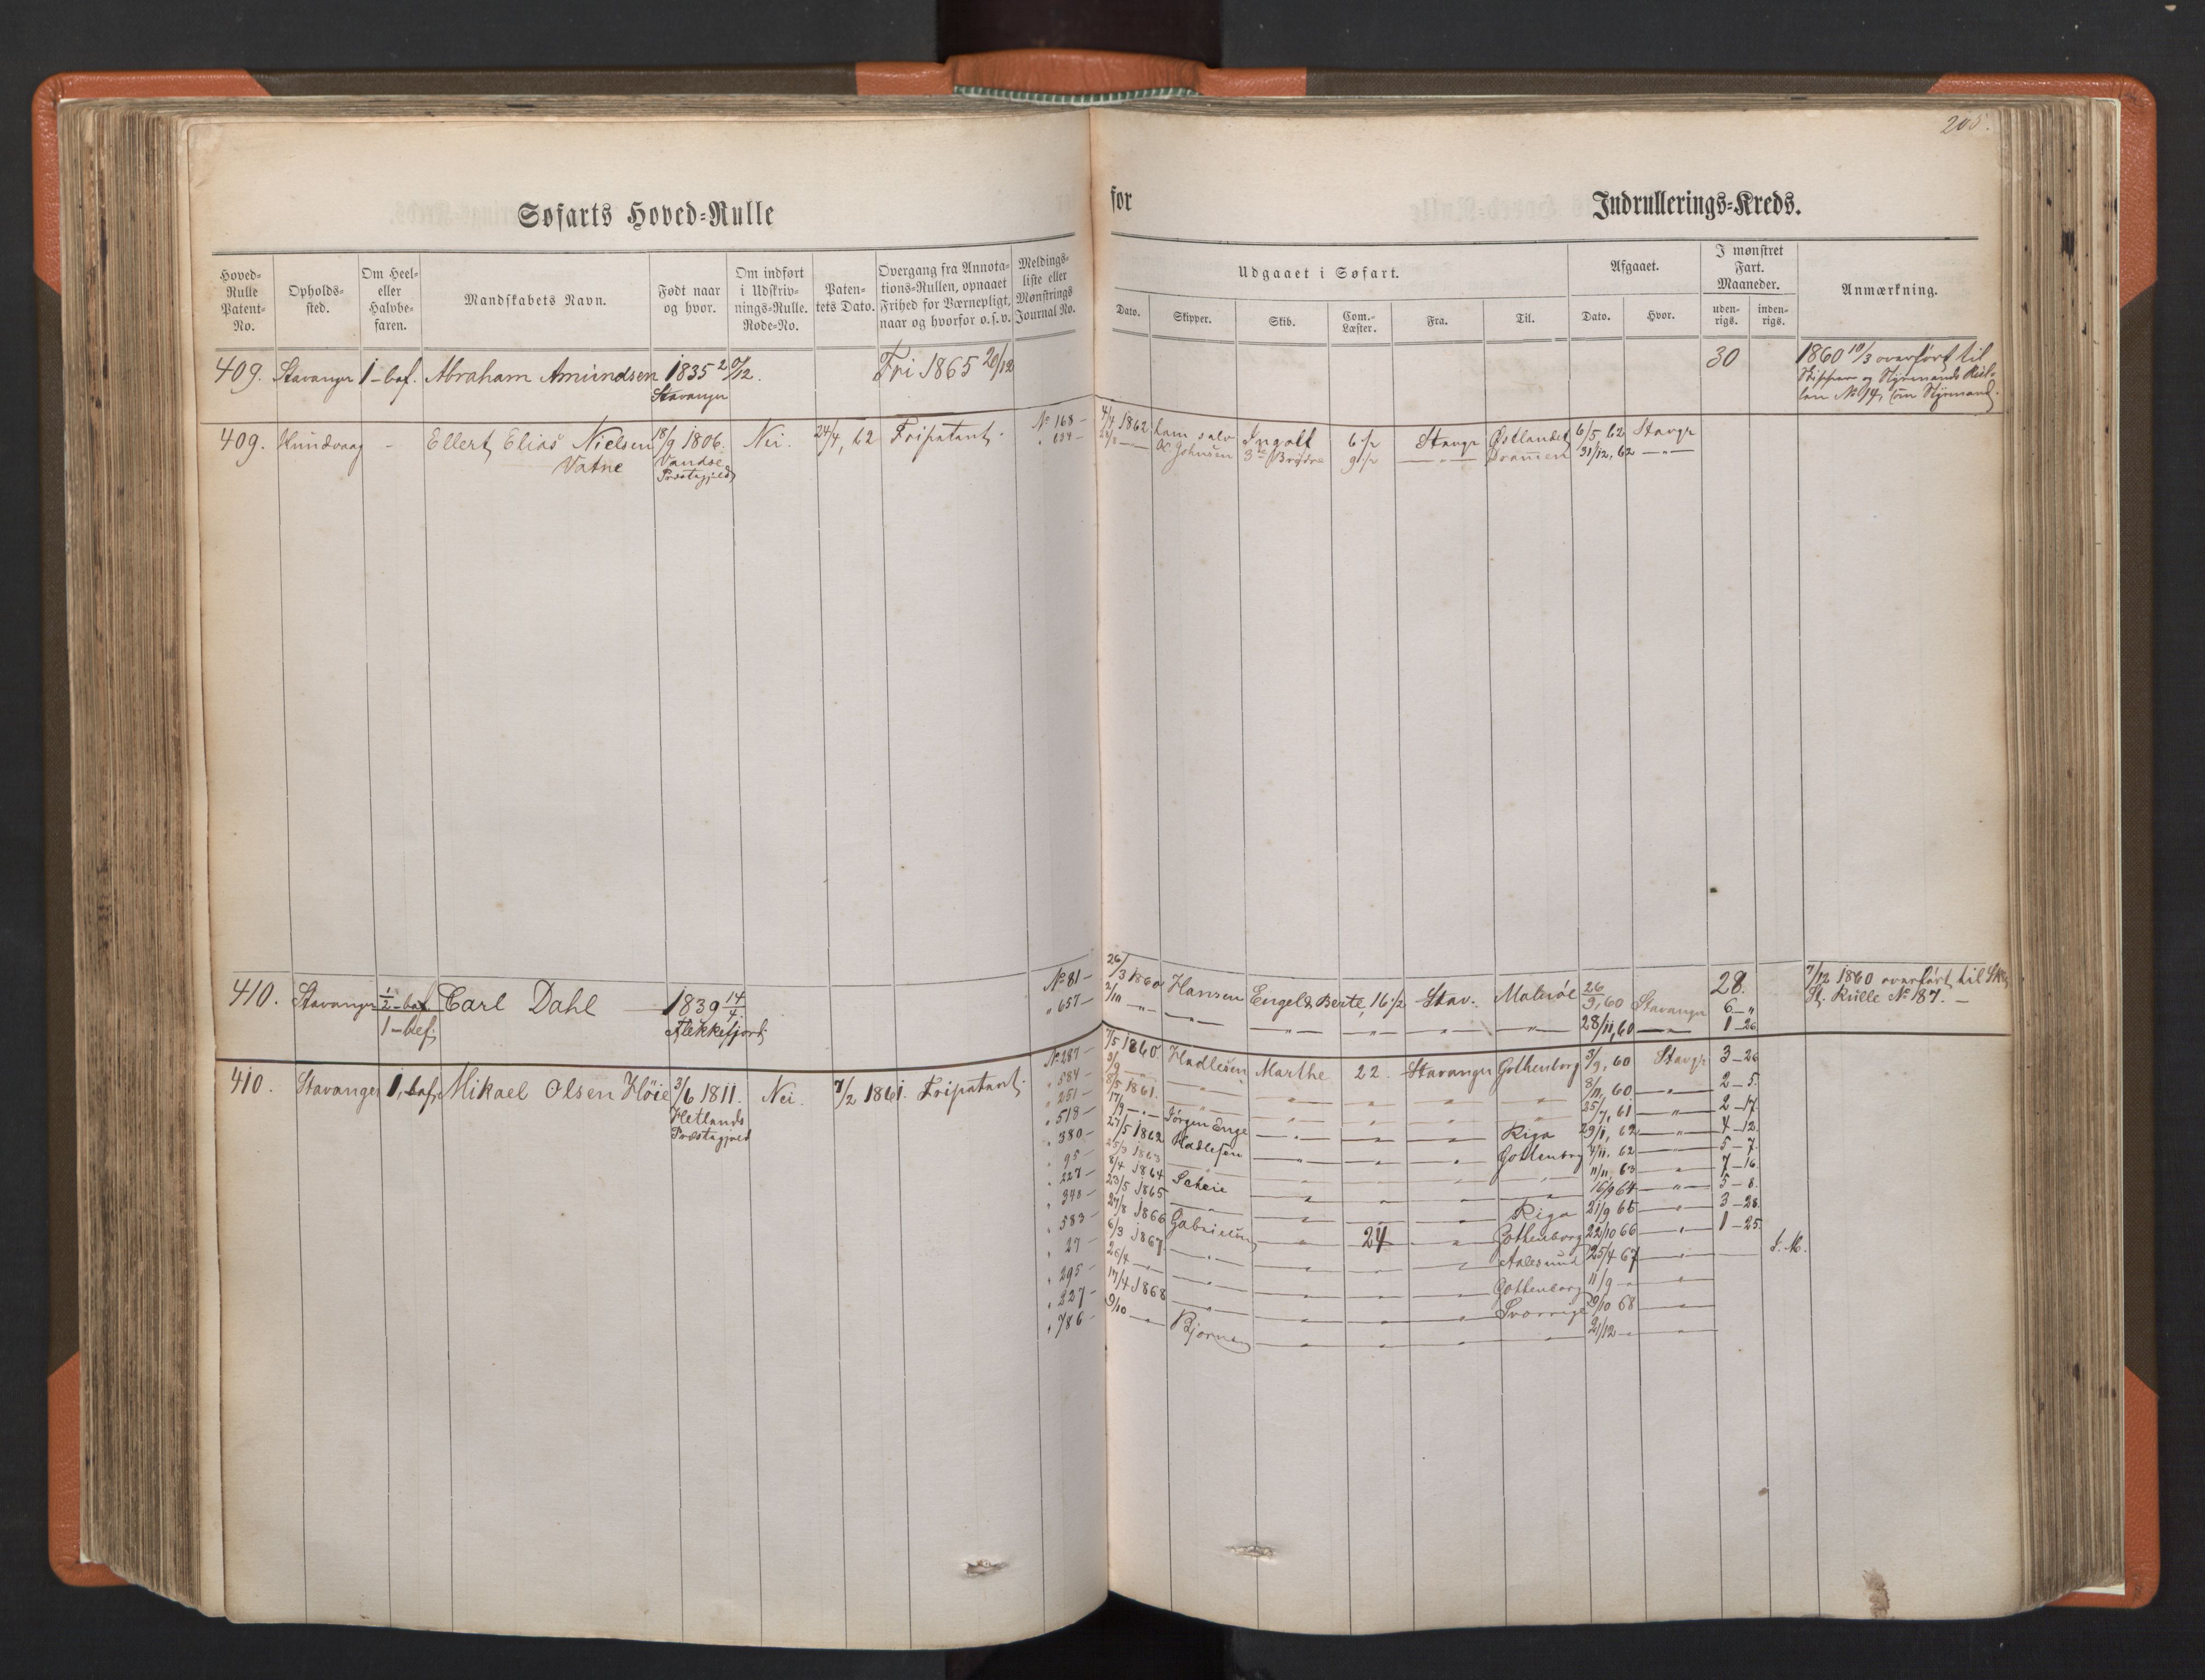 205.
Søfarts Hoved-Rulle
for
Indrullerings-Kreds.
Hoved-Rulle Patent-No.
Opholds-sted.
Om Heel- eller Halvbe-faren.
Mandskabets Navn.
Født naar og hvor.
Om indført i Udskriv-nings-Rulle. Rode-No.
Paten-tets Dato.
Overgang fra Annota-tions-Rullen, opnaaet Frihed for Værnepligt, naar og hvorfor o.s.v.
Meldings-liste eller Mønstrings Journal No.
Udgaaet i Søfart.
Dato.
Skipper.
Skib.
Com.-Læster.
Fra.
Til.
Afgaaet.
Dato.
Hvor.
I mønstret Fart. Maaneder.
uden-rigs.
inden-rigs.
Anmærkning.
409. Stavanger 1-bef. Abraham Amundsen 1835 20/12. Fri 1865 20/12 30 1860 10/3 overført til
Stavanger Skipper og Styrmands Rul-
len No 94, som Styrmand.
409. Hundvaag - Ellert Elias Nielsen 18/9 1806. Nei. 24/4, 62 Fripatent. No 168 - 4/4 1862 ham selv Ingolf 6 1/2 Stavgr Østlandet 6/5, 62 Stavgr
Vatne Vandse Præstegjeld Johnsen 3de Brødre 9 1/2 - " - Drammen 31/12, 62 - " -
410. Stavanger 1/2-bef. Carl Dahl 1839 14/4. No 81 - 26/3 1860 Hansen Engel & Berte, 16 1/2 Stav. 26/9, 60 Stavanger 28. 7/12 1860 overført til Sk.
1-bef. Flekkefjord " 657 - 2/10 - " - 28/11, 60 6 - " St. Rulle No 187. -
1 - 26
410. Stavanger 1, bef. Mikael Olsen Høie 3/6 1811. Nei. 7/2 1861. Fripatent. No 287 - 7/5 1860. Hadlesen Marthe 22. Stavanger Gothenborg 3/9, 60 Stavgr 3 - 26
Hetlands Præstegjeld " 584 - 3/9 - " - 8/11, 60 - " - 2 - 5.
" 251 - 8/5 1861. 25/7, 61 - " - 2 - 17.
" 518 - 17/9 - " - Jørgen Enge Riga 29/11, 62 - " - 4 - 12.
" 380 - 27/5 1862 Hadlesen Gothenborg 4/11, 62 - " - 5 - 7.
" 95 - 25/3 1863 11/11, 63 - " - 7 - 16.
" 227 - 8/4 1864 Scheie 16/9 64 - " - 5 - 8.
" 348 - 23/5 1865 Riga 21/9 65 - " - 3 - 28.
" 583 - 27/8 1866 Gabrielsen 24 Gothenborg 22/10 66 - " - 1 - 25.
" 27 - 6/3 1867. Aalesund 25/4 67 - " -
" 295 - 26/4 - " - Gothenborg 11/9 - " -
" 227 - 17/4 1868 Sverrige 9/10 68 - " -
" 786 - 9/10 - " - 21/12 - " -